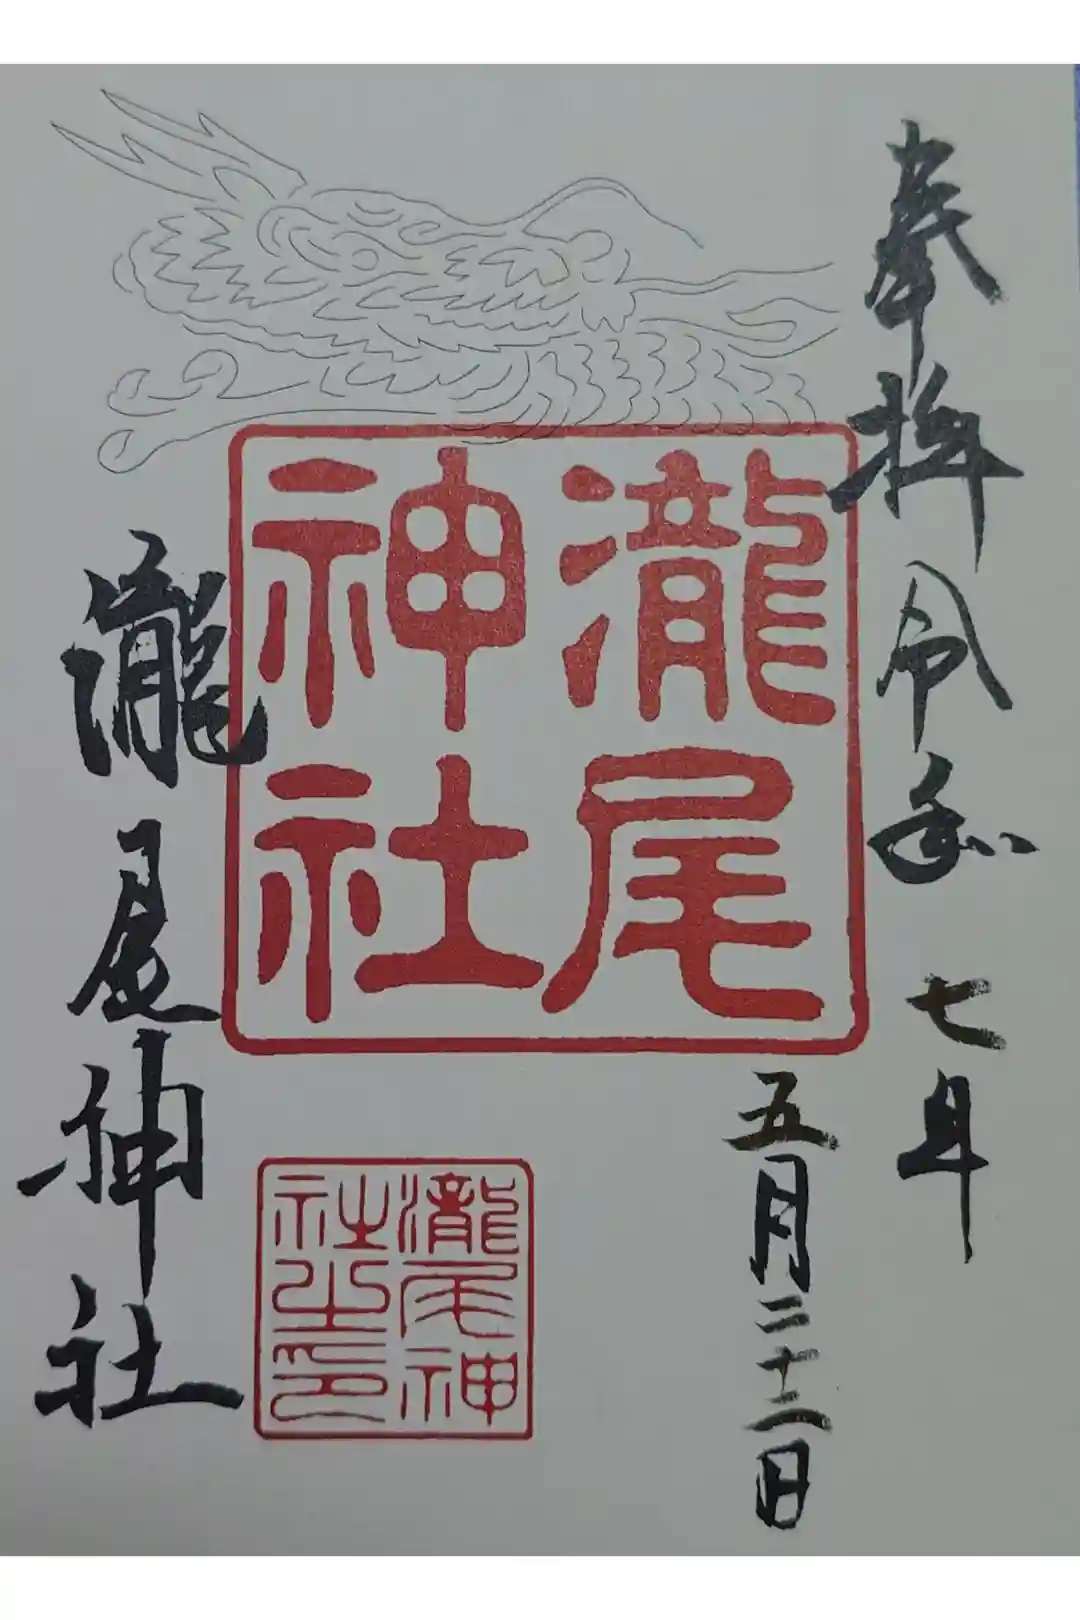 奉拝 令和 七年
五月二十二日
瀧尾
神社
瀧尾神
社之印
瀧尾神社